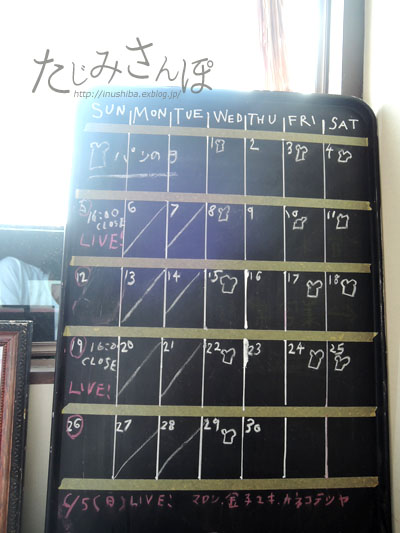 たじみさんぽ
http://inushiba.exblog.jp/
SUN MON TUE WED THU FRI SAT
パンの日 1 2 3 4
5 16:00 CLOSE LIVE! 6 7 8 9 10 11
12 13 14 15 16 17 18
19 16:00 CLOSE LIVE! 20 21 22 23 24 25
26 27 28 29 30
6/5(日) LIVE! マロン.金子ユキ.カネコテツヤ